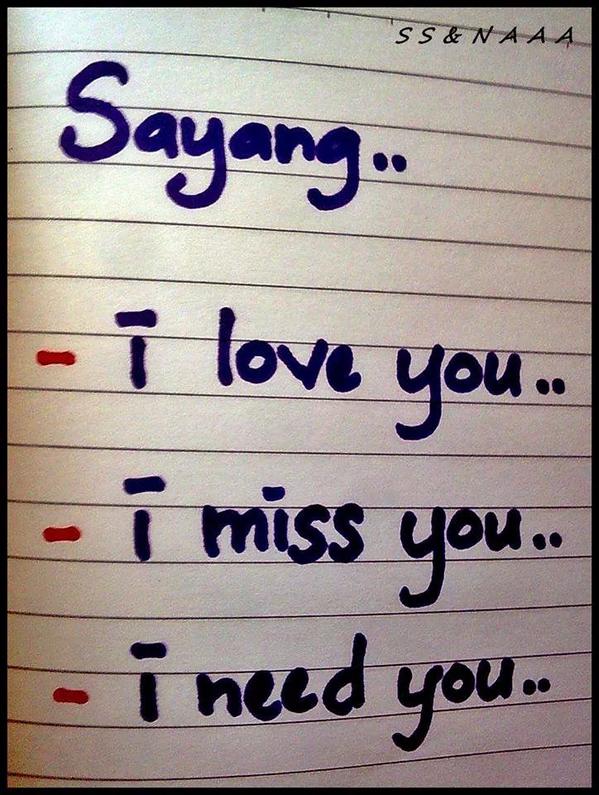 SS&NAAA
Sayang..
- I love you..
- I miss you..
- I need you..